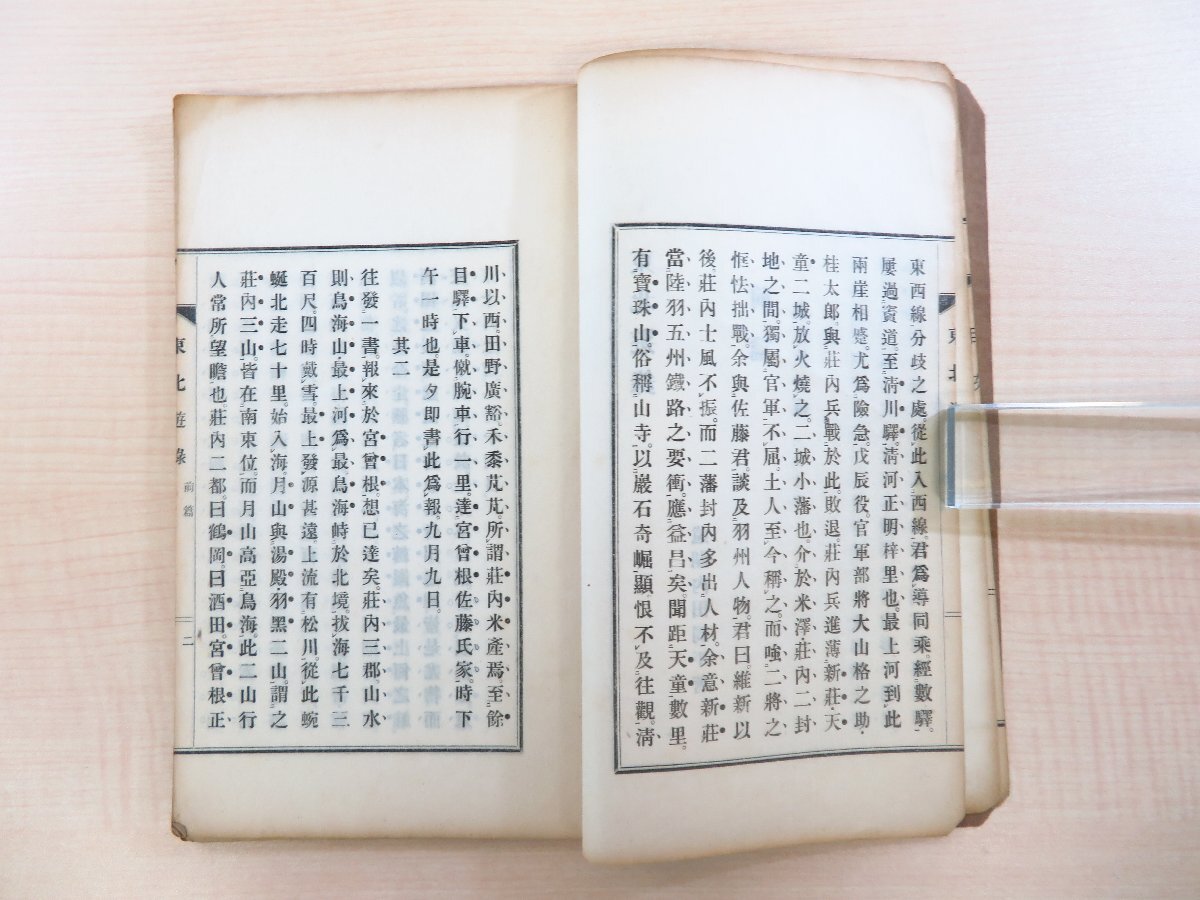 東西線分歧之處。從此入西線。君爲導同乘。經數驛。
屢過賓道。至淸川驛。淸河正明梓里也。最上河到此
兩崖相蹙。尤爲險急。戊辰役。官軍部將大山格之助・
桂太郎。與莊内兵戰於此。敗退。莊内兵進薄新莊・天
童二城。放火燒之。二城小藩也。介於米澤・莊内二封
地之間。獨屬官軍不屈。土人至今稱之。而嗤二將之
恇怯拙戰。余與佐藤君。談及羽州人物。君曰。維新以
後。莊内士風不振。而二藩封内多出人材。余意新莊
當陸羽五州鐵路之要衝。應益昌矣。聞距天童數里。
有寶珠山。俗稱山寺。以巖石奇崛顯。恨不及往觀。淸
川以西。田野廣豁。禾黍芃芃。所謂莊内米產焉。至餘
目驛。下車。僦腕車行一里。達宮曾根佐藤氏家。時下
午一時也。是夕即書此爲報。九月九日。
其二
往發一書。報來於宮曾根。想已達矣。莊内三郡山水
則鳥海山・最上河爲最。鳥海峙於北境。拔海七千三
百尺。四時戴雪。最上發源甚遠。上流有松川。從此蜿
蜒北走七十里。始入海。月山與湯殿・羽黑二山。謂之
莊内三山。皆在南東位。而月山高亞鳥海。此二山行
人常所望瞻也。莊内二都。曰鶴岡。曰酒田。宮曾根正
東北遊錄 前篇
二